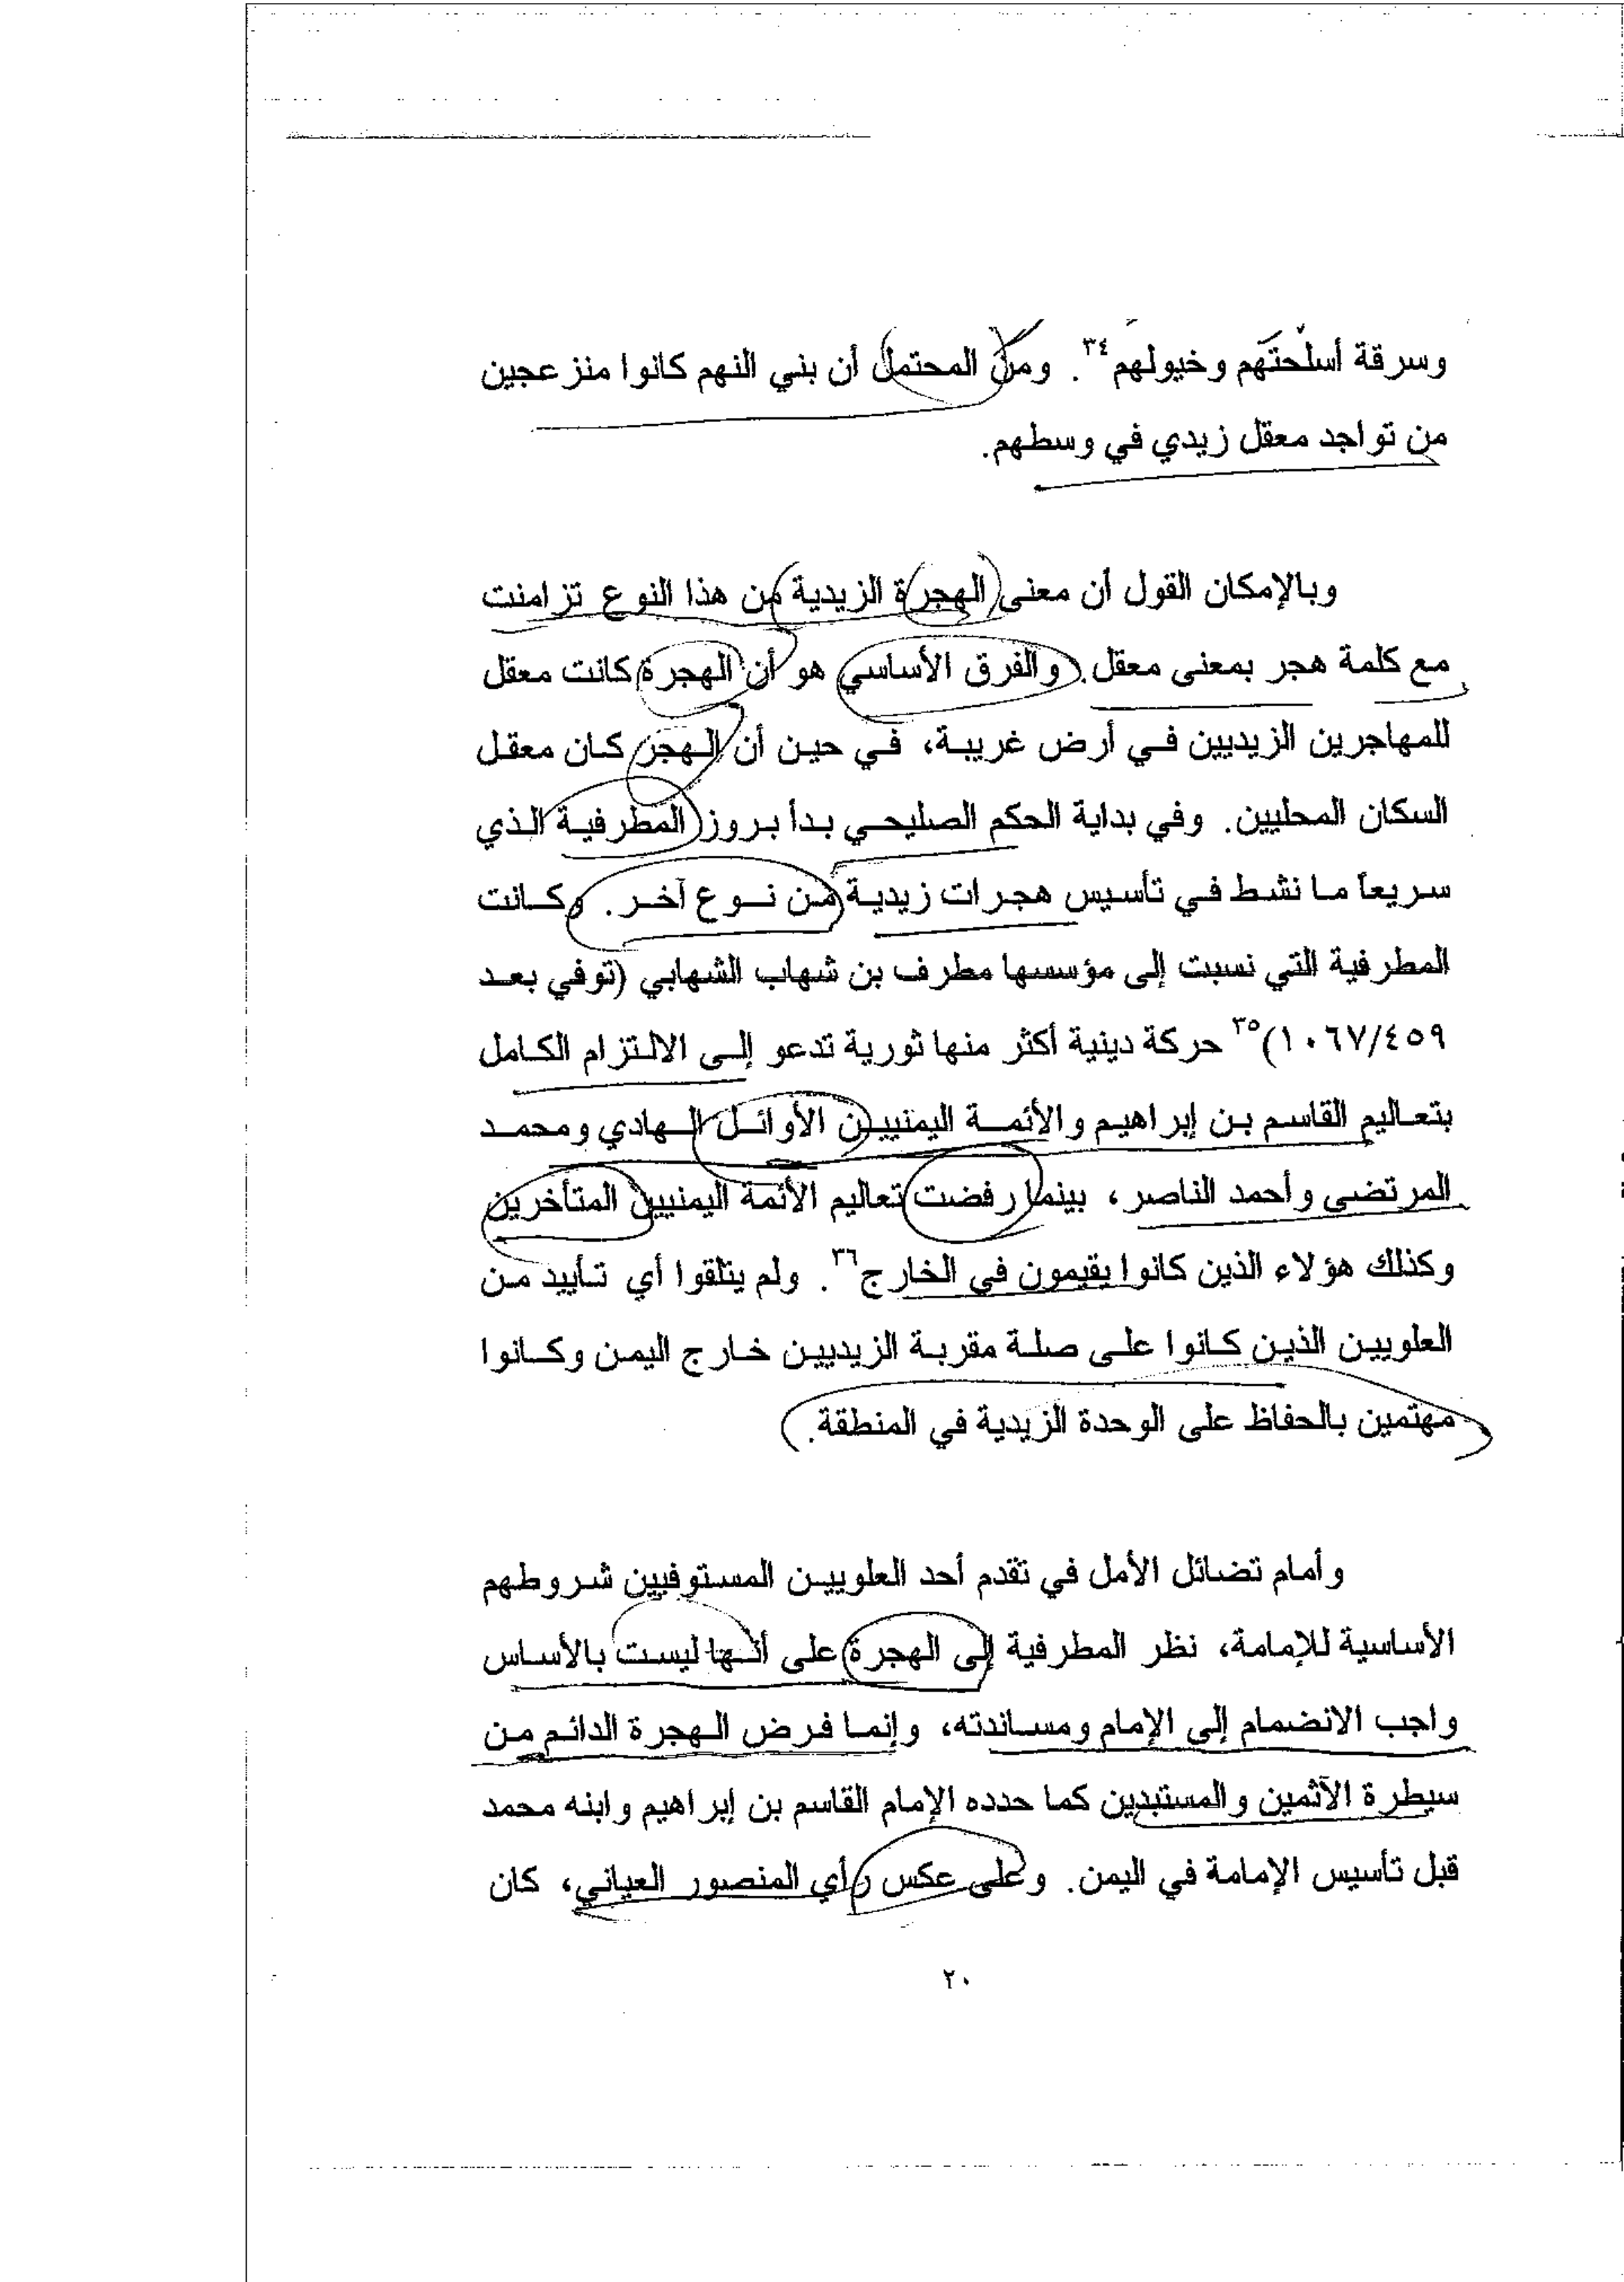 وسرقة أسلحتهم وخيولهم٣٤. ومن المحتمل أن بني النهم كانوا منزعجين
من تواجد معقل زيدي في وسطهم.
وبالإمكان القول أن معنى الهجرة الزيدية من هذا النوع تزامنت
مع كلمة هجر بمعنى معقل. والفرق الأساسي هو أن الهجرة كانت معقل
للمهاجرين الزيديين في أرض غريبة، في حين أن الهجر كان معقل
السكان المحليين. وفي بداية الحكم الصليحي بدأ بروز المطرفية الذي
سريعاً ما نشط في تأسيس هجرات زيدية من نوع آخر. وكانت
المطرفية التي نسبت إلى مؤسسها مطرف بن شهاب الشهابي (توفي بعد
١٠٦٧/٤٥٩)٣٥ حركة دينية أكثر منها ثورية تدعو إلى الالتزام الكامل
بتعاليم القاسم بن إبراهيم والأئمة اليمنيين الأوائل الهادي ومحمد
المرتضى وأحمد الناصر، بينما رفضت تعاليم الأئمة اليمنيين المتأخرين
وكذلك هؤلاء الذين كانوا يقيمون في الخارج٣٦. ولم يتلقوا أي تأييد من
العلويين الذين كانوا على صلة مقربة الزيديين خارج اليمن وكانوا
مهتمين بالحفاظ على الوحدة الزيدية في المنطقة.
وأمام تضائل الأمل في تقدم أحد العلويين المستوفيين شروطهم
الأساسية للإمامة، نظر المطرفية إلى الهجرة على أنها ليست بالأساس
واجب الانضمام إلى الإمام ومساندته، وإنما فرض الهجرة الدائم من
سيطرة الآثمين والمستبدين كما حدده الإمام القاسم بن إبراهيم وابنه محمد
قبل تأسيس الإمامة في اليمن. وعلى عكس رأي المنصور العياني، كان
٢٠